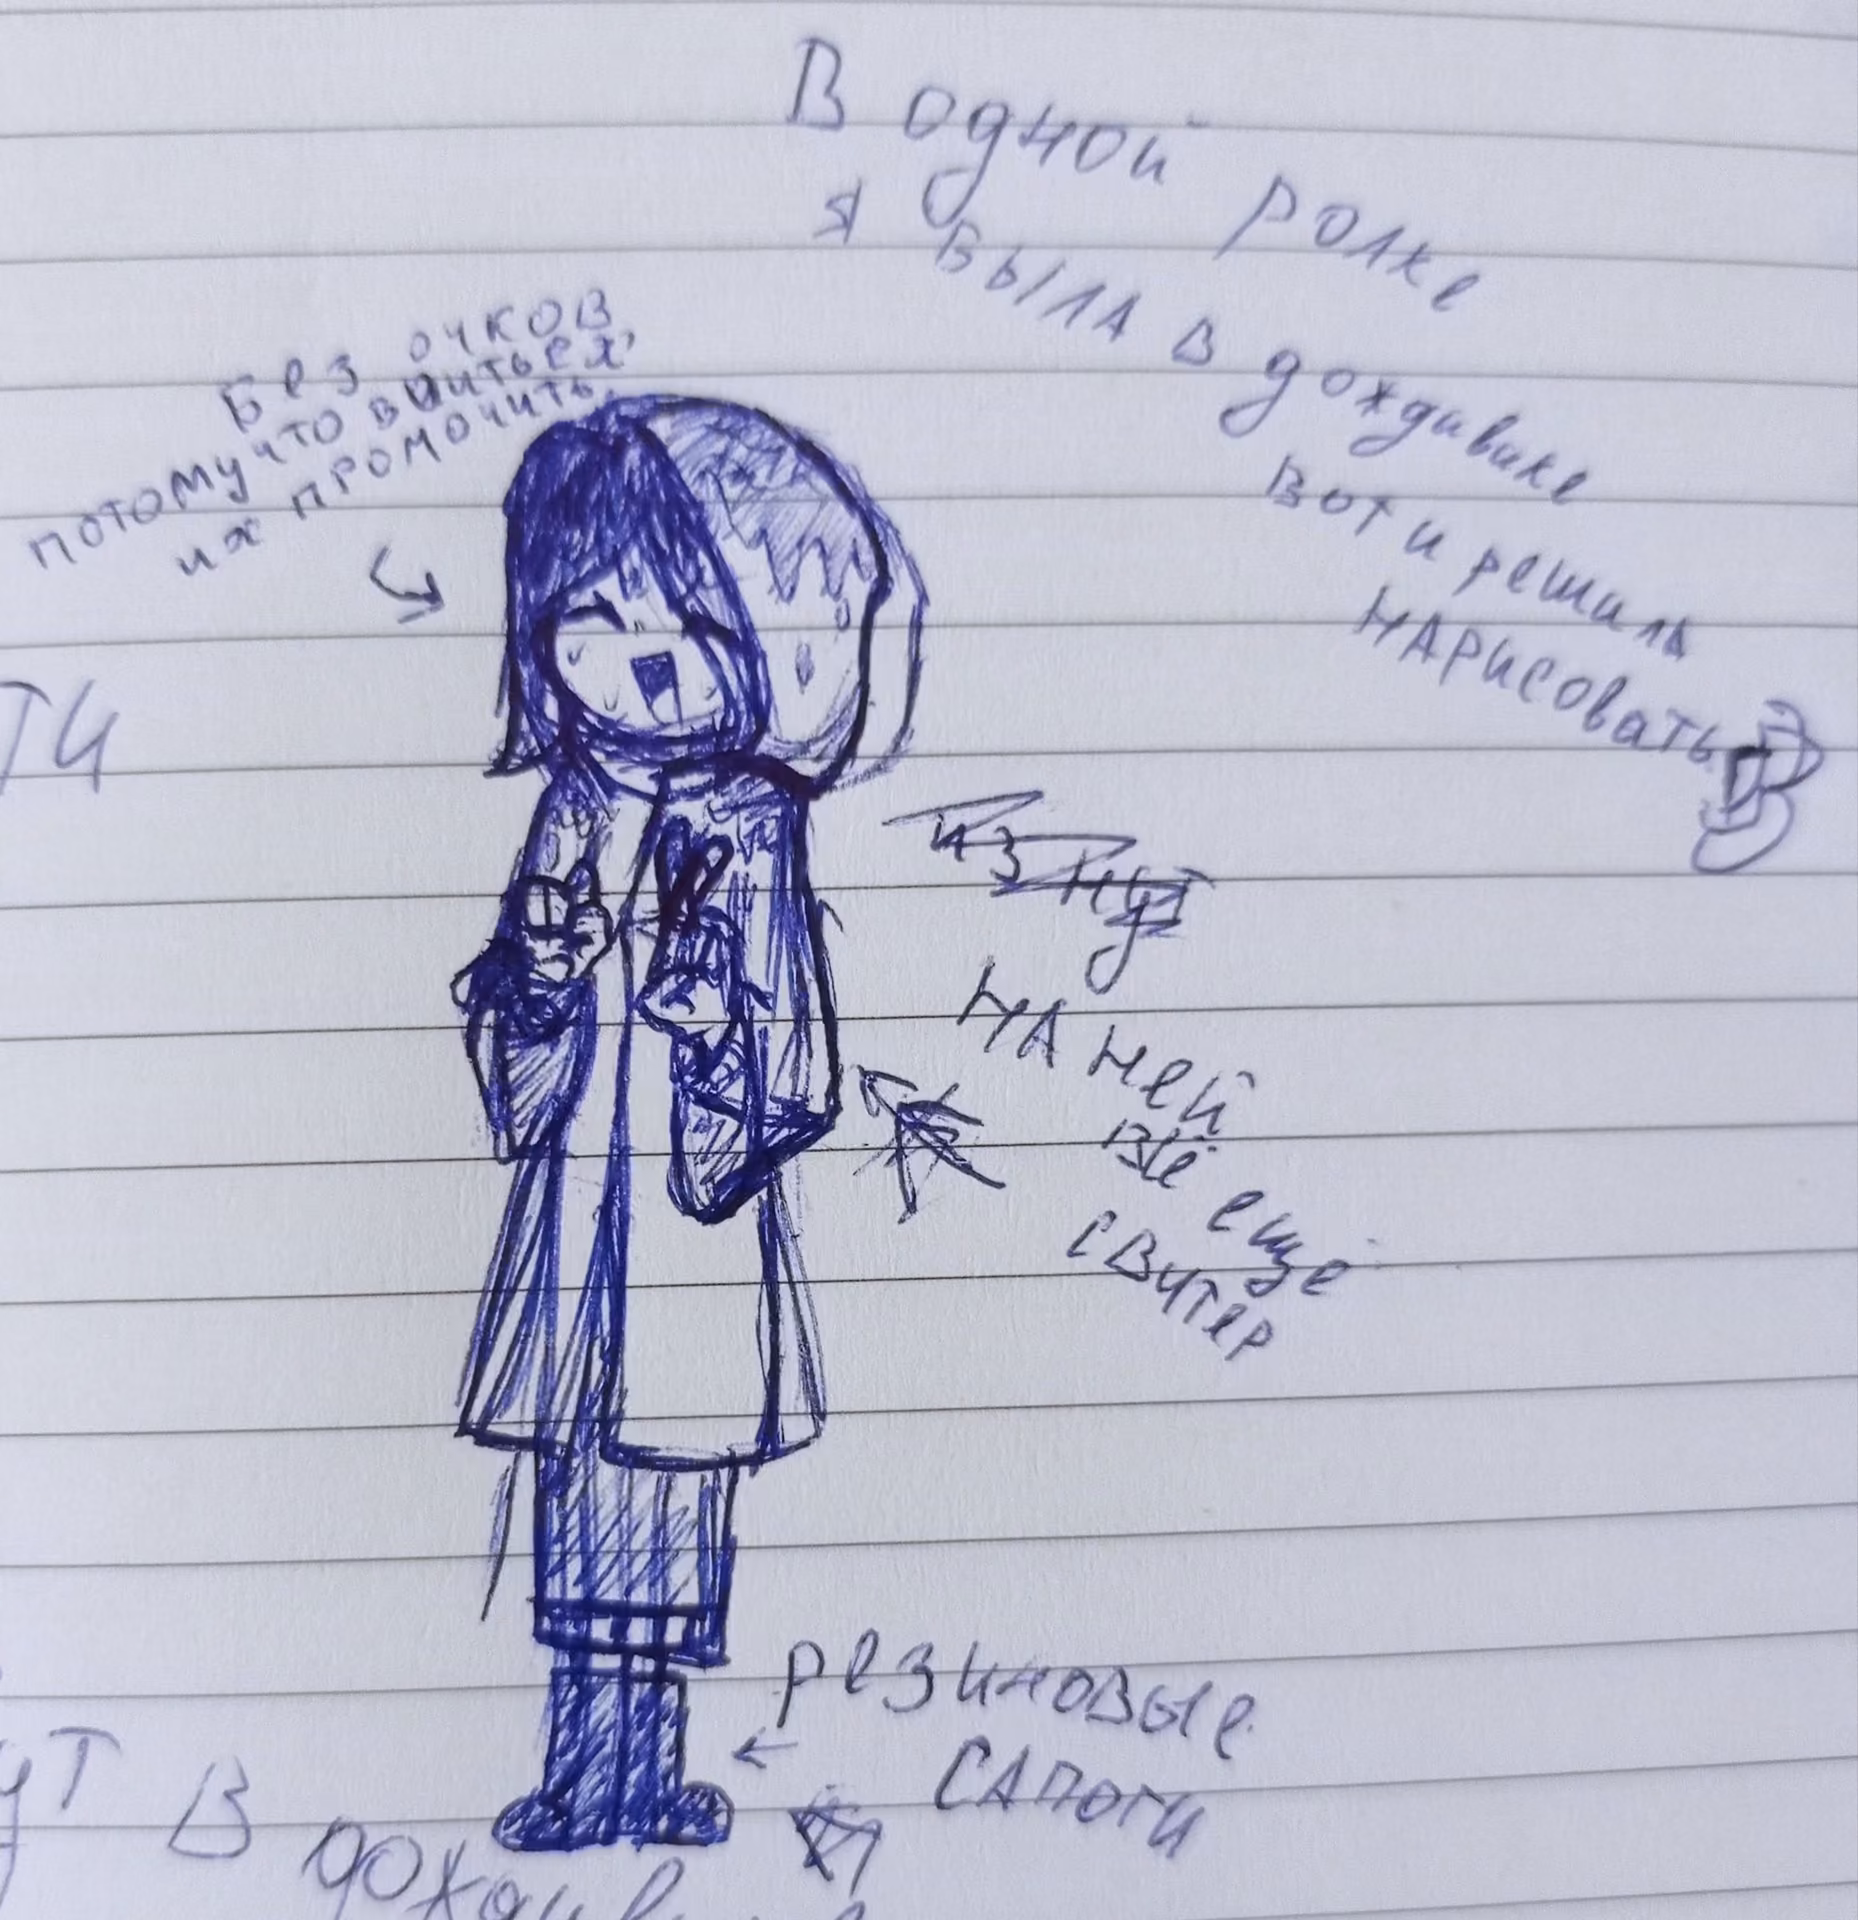 В одной ролке
я была в дождивике
вот и решила
нарисовать
Без очков
потому что воиться,
их промочить.
ТИ
на ней
всё ещё
свитер
резиновые
сапоги
ут в
дождив